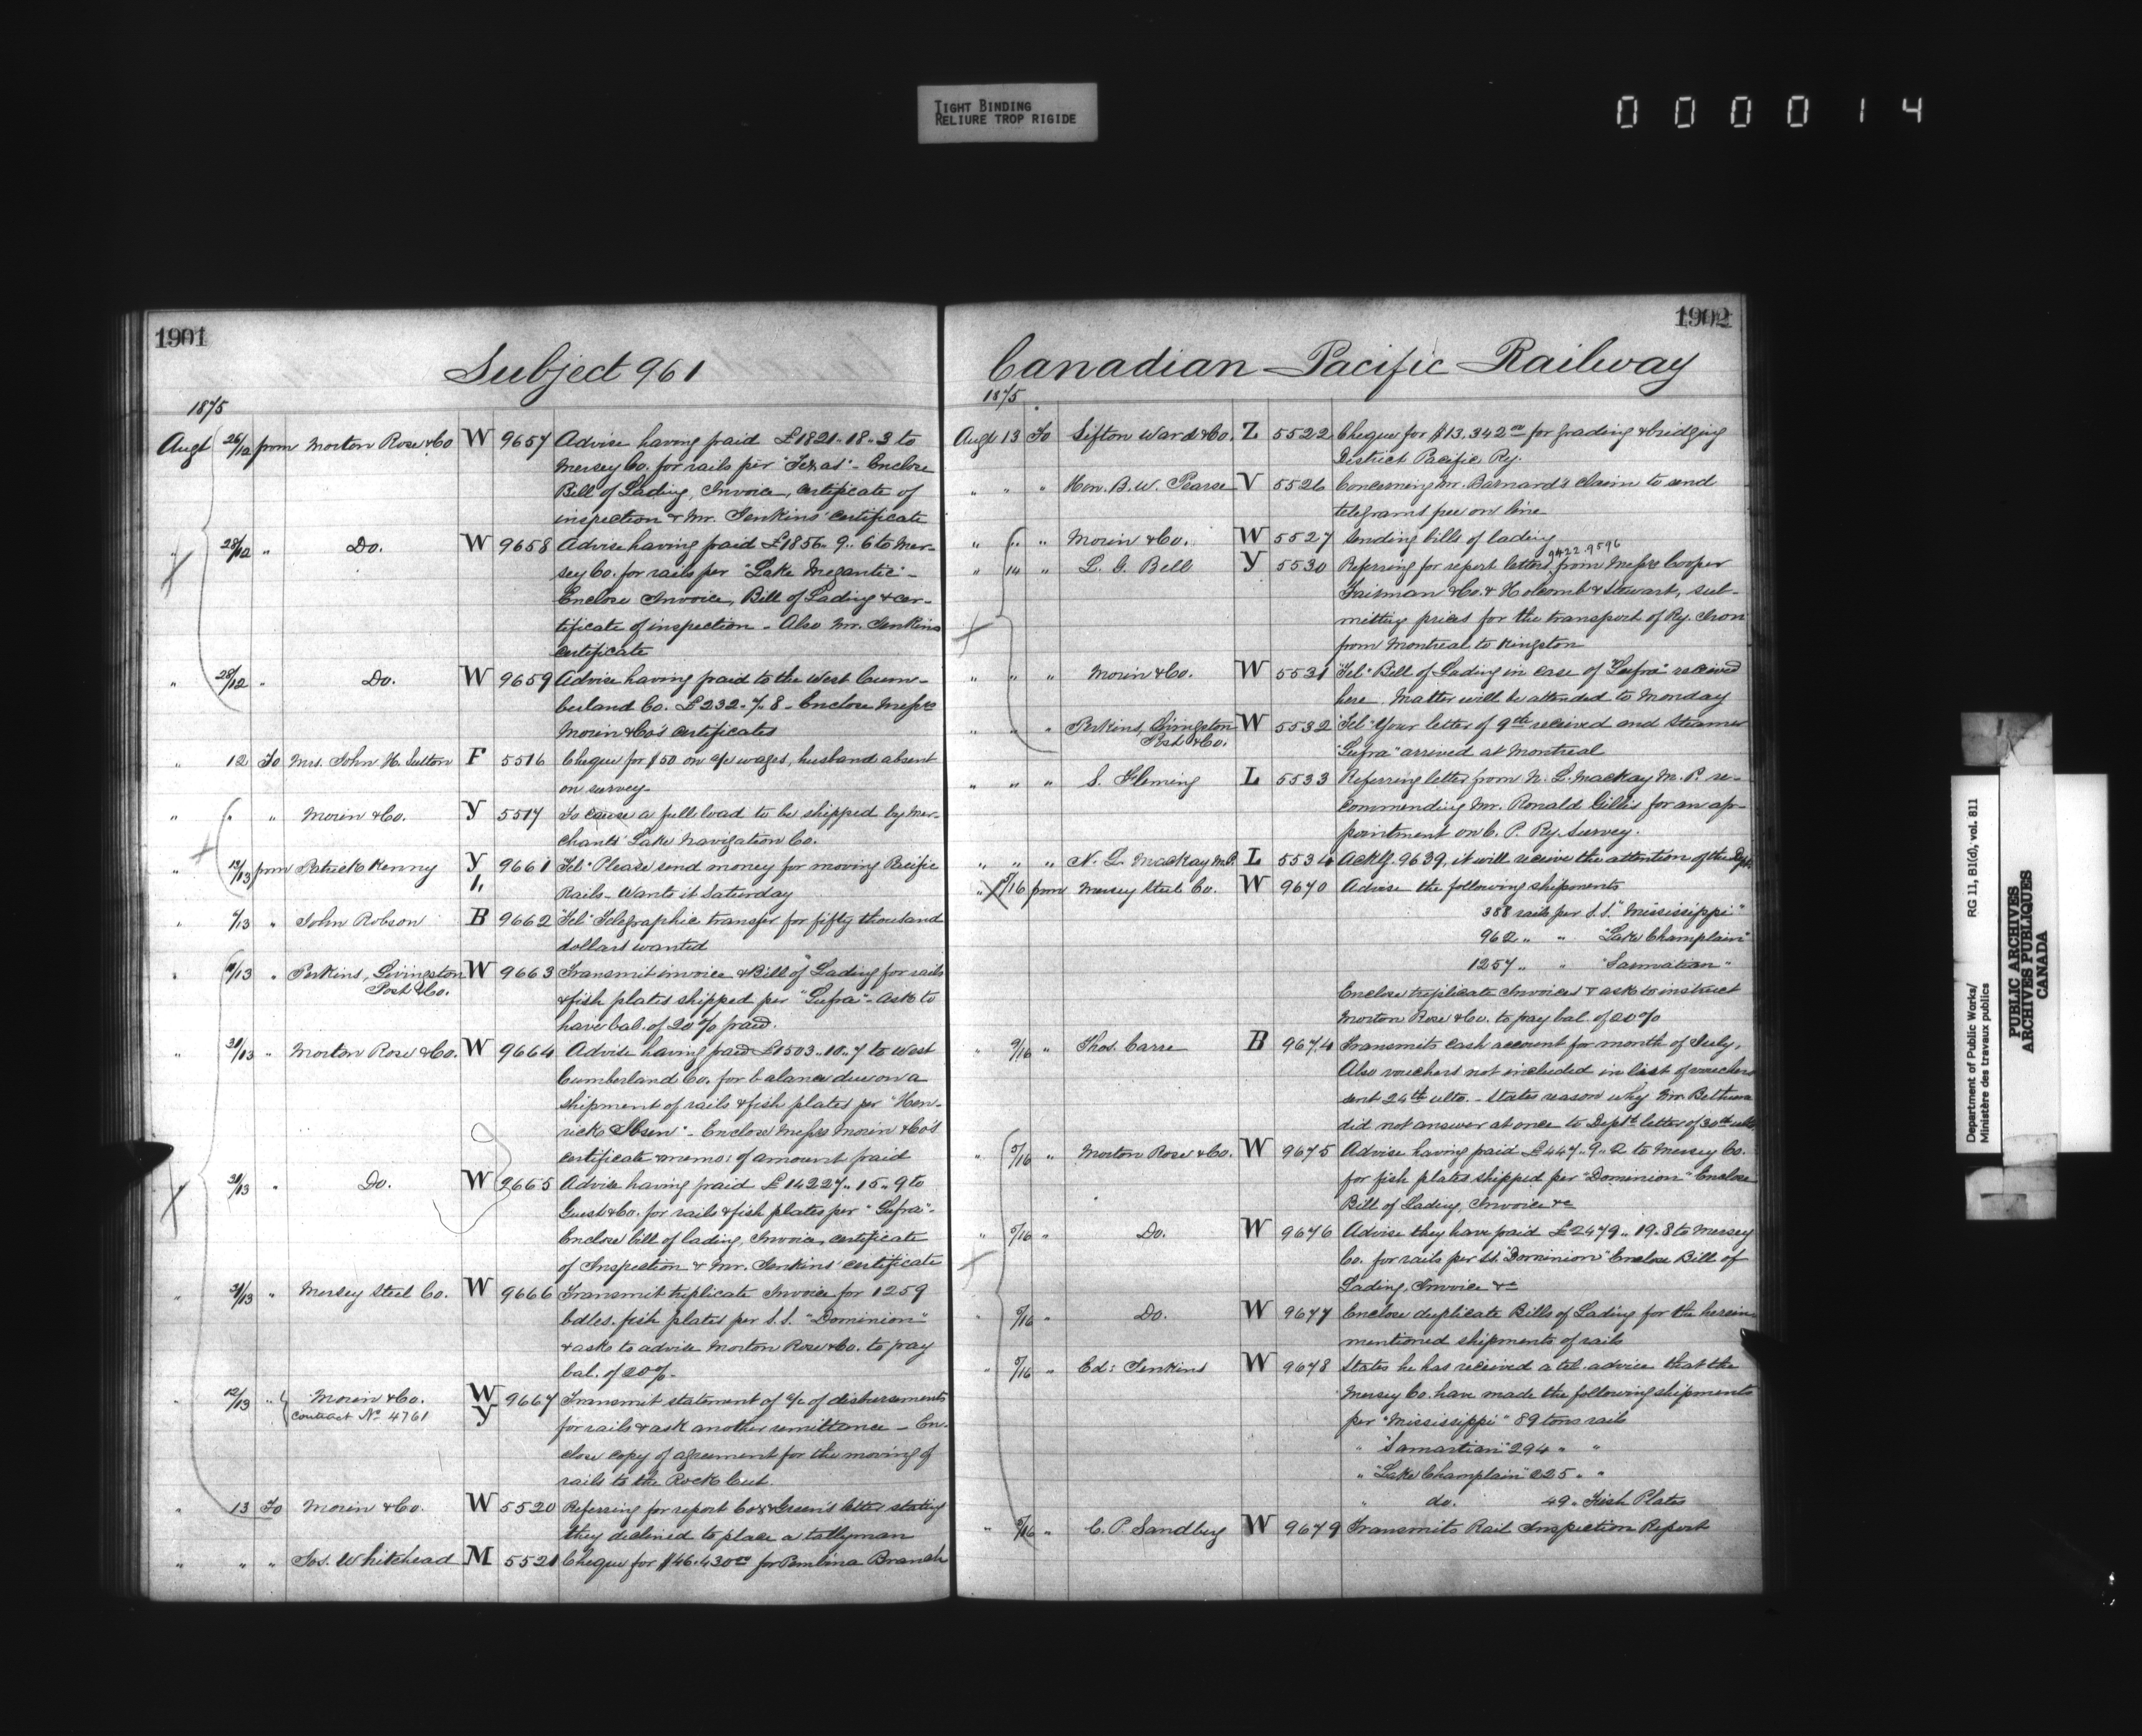 TIGHT BINDING
RELIURE TROP RIGIDE
000014
1901
Subject 961
1875
Augt 26/12 from Morton Rose & Co W 9657 Advise having paid £1821..18..3 to
Mersey Co. for rails per "Texas" - Enclose
Bill of Lading, Invoice, certificate of
inspection & Mr. Jenkins' certificate
" 28/12 " Do. W 9658 Advise having paid £1856..9..6 to Mer-
sey Co. for rails per "Lake Megantic" -
Enclose Invoice, Bill of Lading & cer-
tificate of inspection - Also Mr. Jenkins
certificate
" 28/12 " Do. W 9659 Advise having paid to the West Cum-
berland Co. £232..7..8 - Enclose Messrs
Morin & Co's certificates
" 12 To Mrs. John H. Sutton F 5516 Cheque for $50 on a/c wages, husband absent
on survey -
" " " Morin & Co. Y 5517 To cause a full load to be shipped by Mer-
chants' Lake Navigation Co.
" 13/13 from Patrick Kenny Y 9661 "Tel" Please send money for moving Pacific
Rails - Wants it Saturday
" /13 " John Robson B 9662 "Tel" Telegraphic transfer for fifty thousand
dollars wanted
" /13 " Perkins, Livingston W 9663 Transmit invoice & Bill of Lading for rails
Post & Co.
& fish plates shipped per "Gufra" - Ask to
have bal. of 20% paid.
" 31/13 " Morton Rose & Co. W 9664 Advise having paid £1503..10..7 to West
Cumberland Co. for balance due on a
shipment of rails & fish plates per "Hen-
rick Ibsen" - Enclose Messrs Morin & Co's
certificate & memo: of amount paid
" 31/13 " Do. W 9665 Advise having paid £14227..15..9 to
Guest & Co. for rails & fish plates per "Gufra" -
Enclose bill of lading, Invoice, certificate
of Inspection & Mr. Jenkins' certificate
" 31/13 " Mersey Steel Co. W 9666 Transmit triplicate Invoice for 1259
bdles. fish plates per S.S. "Dominion"
& ask to advise Morton Rose & Co. to pay
bal. of 20% -
" 12/13 " Morin & Co. W 9667 Transmit statement of a/c of disbursements
Contract No. 4761 Y
for rails & ask another remittance - En-
close copy of agreement for the moving of
rails to the Rock Cut.
" 13 To Morin & Co. W 5520 Referring for report Cox & Green's letter stating
they declined to place a tallyman
" " " Jos. Whitehead M 5521 Cheque for $46.430 00 for Pembina Branch
1902
Canadian Pacific Railway
1875
Augt 13 To Sifton Ward & Co. Z 5522 Cheque for $13,342 00 for grading & bridging
District Pacific Ry.
" " " Hon. B. W. Pearse V 5526 Concerning Mr. Barnard's claim to send
telegrams free on line
" " " Morin & Co. W 5527 Sending bills of lading
9422.9596
" 14 " L. G. Bell Y 5530 Referring for report letters from Messrs Cooper
Fairman & Co. & Holcomb & Stewart, sub-
mitting prices for the transport of Ry. Iron
from Montreal to Kingston
" " " Morin & Co. W 5531 "Tel" Bill of Lading in case of "Gufra" received
here. Matter will be attended to Monday
" " " Perkins, Livingston W 5532 "Tel" Your letter of 9th received and Steamer
Post & Co.
"Gufra" arrived at Montreal
" " " S. Fleming L 5533 Referring letter from N. L. Mackay M. P. re-
commending Mr. Ronald Gillis for an ap-
pointment on C. P. Ry. Survey.
" " " N. L. Mackay M.P. L 5534 Ackg. 9639, it will receive the attention of the Dept.
" /16 from Mersey Steel Co. W 9670 Advise the following shipments
388 rails per S.S. "Mississippi"
962 " " "Lake Champlain"
1257 " " "Sarmatian"
Enclose triplicate Invoices & ask to instruct
Morton Rose & Co. to pay bal. of 20%
" 9/16 " Thos. Carre B 9674 Transmits cash account for month of July.
Also vouchers not included in list of vouchers
sent 24th ulto. - States reason why Mr. Bethune
did not answer at once to Dept's letter of 30th ulto
" 5/16 " Morton Rose & Co. W 9675 Advise having paid £447..9..2 to Mersey Co.
for fish plates shipped per "Dominion" Enclose
Bill of Lading, Invoice &c
" 5/16 " Do. W 9676 Advise they have paid £2479..19..8 to Mersey
Co. for rails per SS. "Dominion" Enclose Bill of
Lading, Invoice &c
" 5/16 " Do. W 9677 Enclose duplicate Bills of Lading for the herein
mentioned shipments of rails
" 5/16 " Ed: Jenkins W 9678 States he has received a tel. advice that the
Mersey Co. have made the following shipments
per "Mississippi" 89 tons rails
" "Samartian" 294 " "
" "Lake Champlain" 225 " "
" do. 49 " Fish Plates
" 5/16 " C. P. Sandberg W 9679 Transmits Rail Inspection Report
Department of Public Works/
Ministère des travaux publics
RG 11, B1(d), vol. 811
PUBLIC ARCHIVES
ARCHIVES PUBLIQUES
CANADA